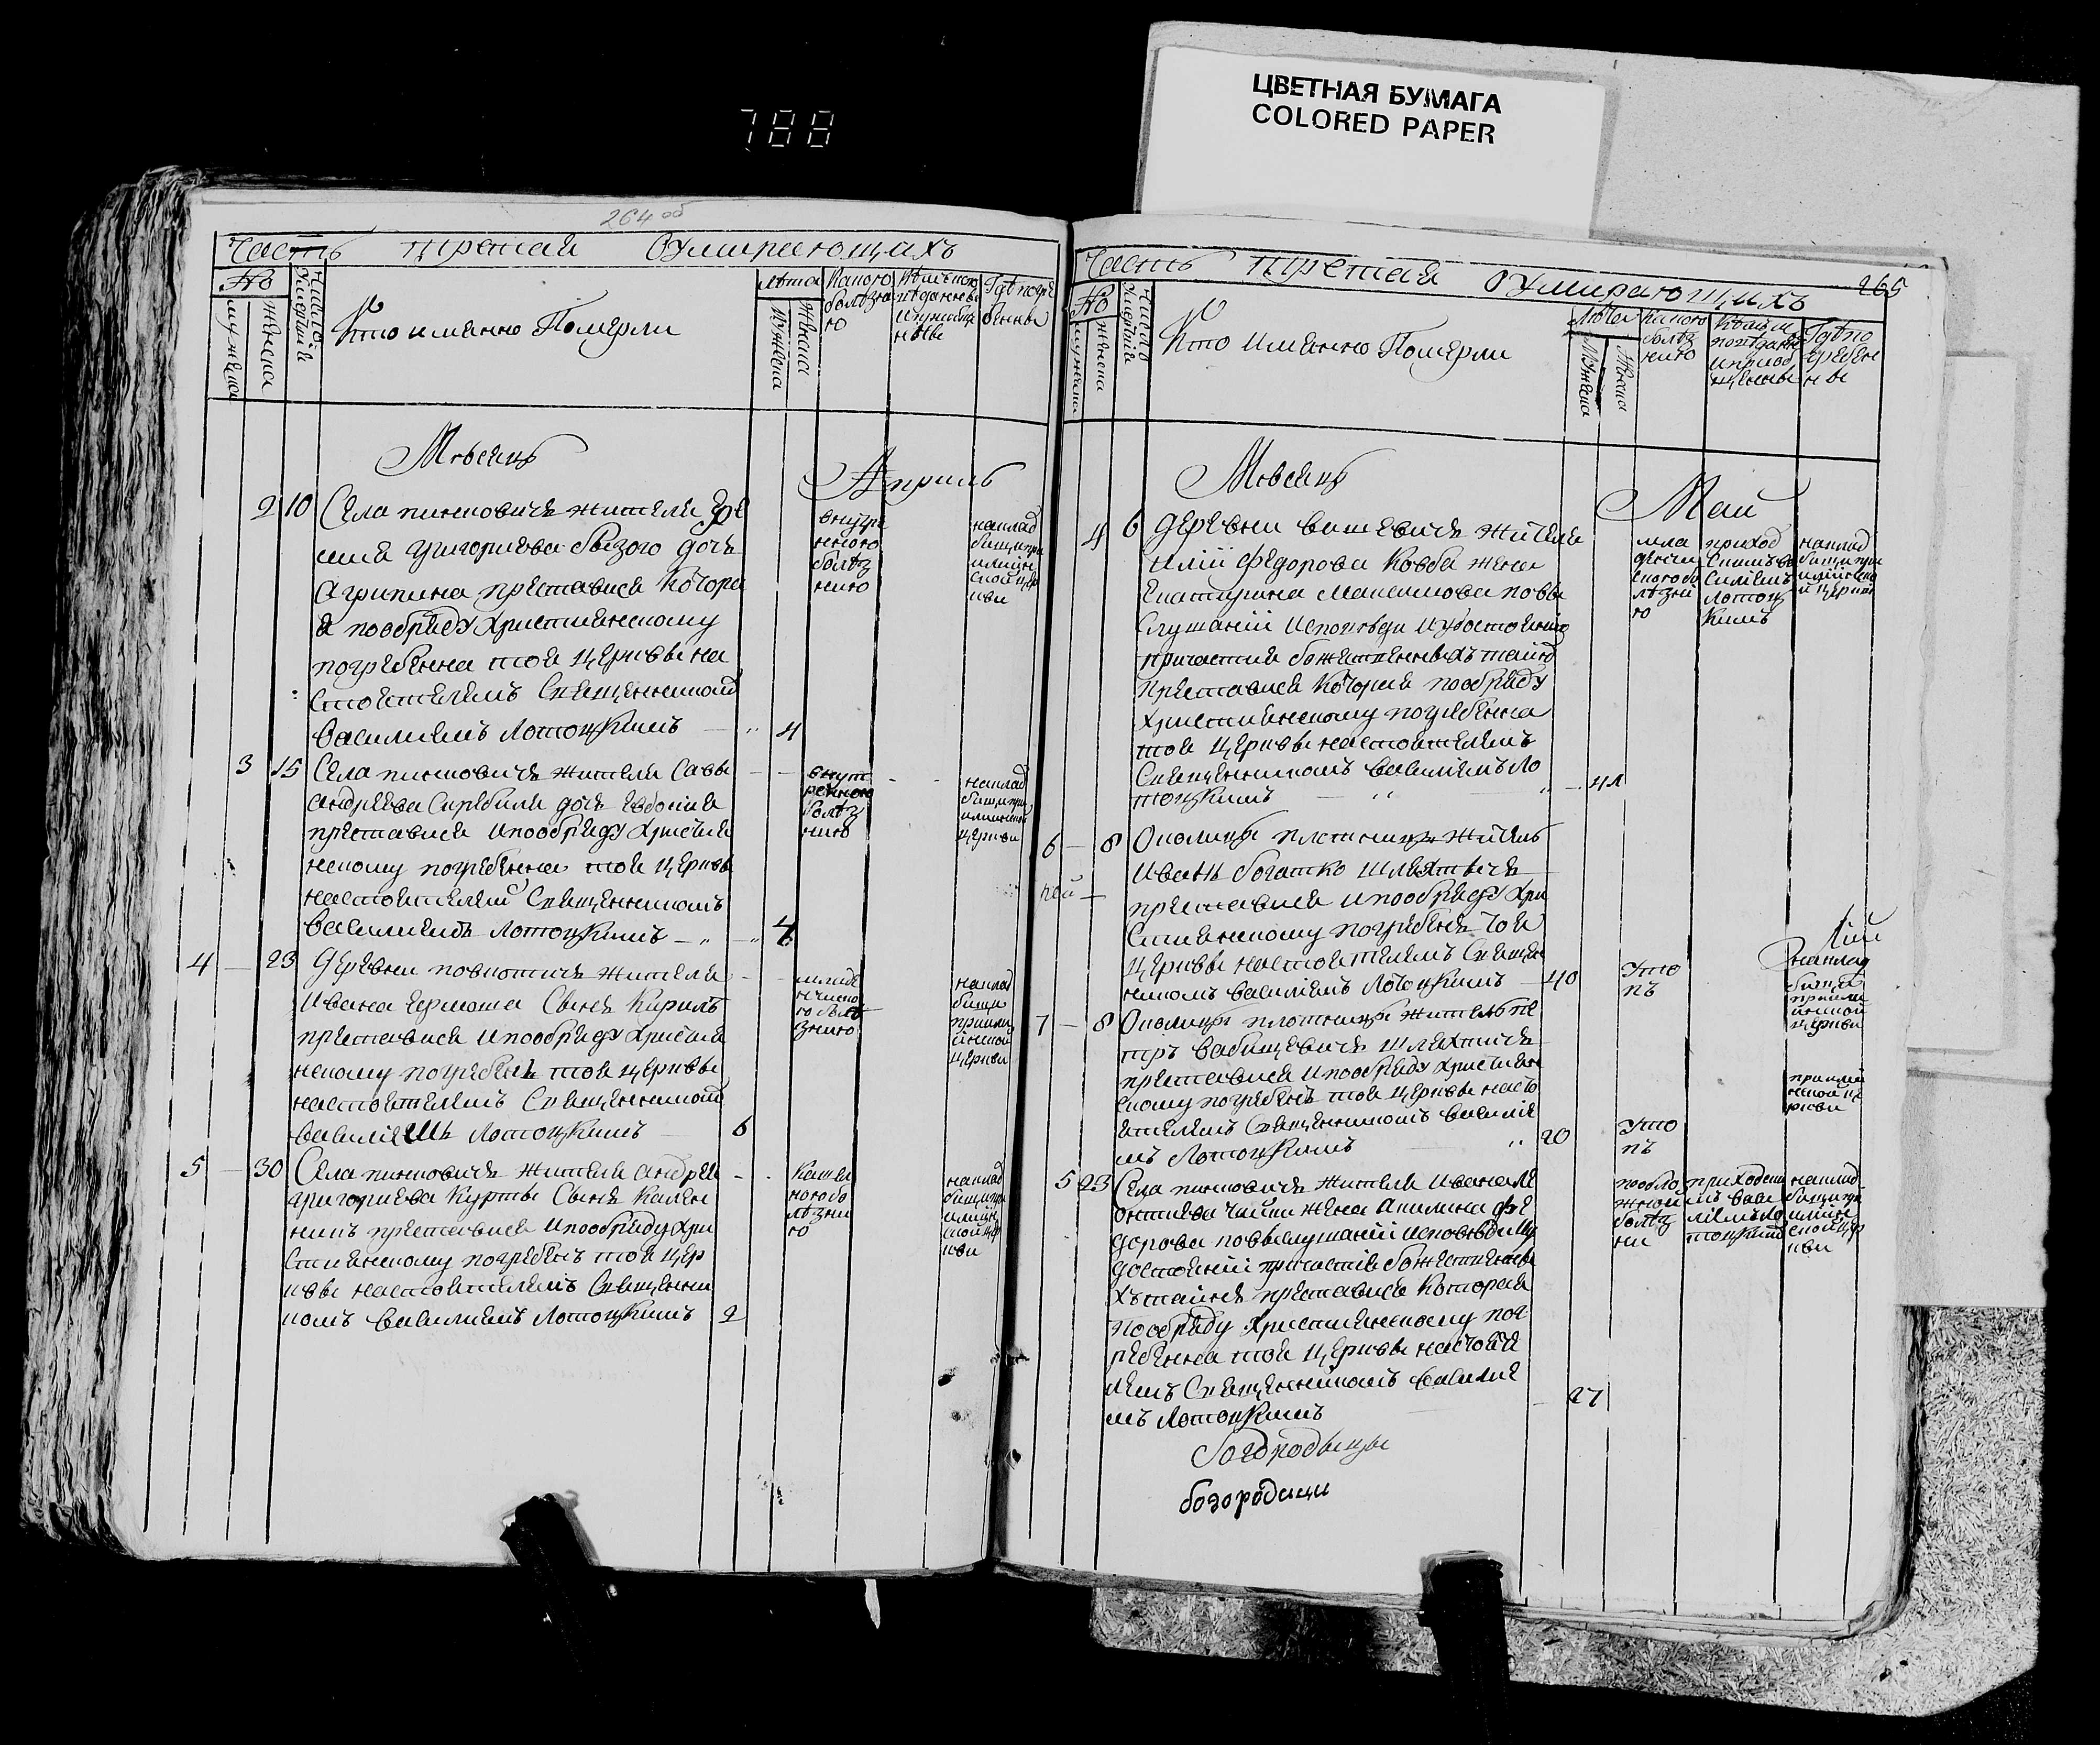 788
ЦВЕТНАЯ БУМАГА
COLORED PAPER
264 об
Часть третая Оумирающихъ
No
мужеска
женска
Число
Умертвія
Кто именно Померли
лѣта
Мужеска
Женска
Какою
болѣзн
ію
Гдѣ погре
бенны
Мѣсяцъ
Априль
2 10 Села пинковичъ жителя
Григориева дочь
Агрипина преставися Котора
я пообряду Християнскому
погребенна тоя церкви на
стоятелемъ Священником
Василиемъ Лотоцкимъ 4
внутре
нною
болѣз
нию
наклад
бищи при
илиин
ской цер
кви
3 15 Села пинковичъ жителя Савы
Андреева дочь Евдокия
преставися и пообряду Христия
нскому погребенна тоя Церквы
настоятелем Священникомъ
Василиемъ Лотоцкимъ 4
внут
ренною
болѣз
нию
наклад
бищи при
илиинской
церкви
4 23 Деревни повчотичъ жителя
Ивана Ермоша Сынъ Кирилъ
преставися и пообряду Христия
нскому погребенъ тоя церквы
настоятелемъ Священником
Василіемъ Лотоцкимъ 6
младе
нческо
ю болѣ
знию
наклад
бищи
при или
инской
церкви
5 30 Села пинковичъ жителя Андрея
Григориева Курты Сынъ Калин
никъ преставися и пообряду Хри
стиянскому погребенъ тоя цер
квы настоятелемъ Священни
комъ Василиемъ Лотоцкимъ 2
кашел
ною бо
лѣзни
ю
наклад
бищи при
илиин
ской цер
кви
Часть третая Оумирающихъ
265
No
мужеска
женска
Число
Умертвія
Кто именно Померли
Лѣта
Мужеска
Женска
Какою
болѣз
нию
Кѣм и
повѣданны
и приоб
щенны
Гдѣ по
гребен
ны
Мѣсяцъ
Май
4 6 Деревни вишевичъ жителя
Иліи Федорова Ковба жена
Екатирина Максимова повы
слушаніи исповѣди и удостоении
причастия божественныхъ тайнъ
преставися Которая пообряду
Християнскому погребенна
тоя Церквы настоятелемъ
Священникомъ Василіемъ Ло
тоцкимъ 41
мла
денче
скою бо
лѣзни
ю
приход
скимъ Ва
силіемъ
Лотоц
кимъ
наклад
бищи при
илиинско
й церкви
6 8 Околицы плотницы житель
Иванъ Богатко шляхтичъ
преставися и пообряду Хри
стиянскому погребенъ тоя
церквы настоятелемъ Священ
никомъ Василіемъ Лотоцкимъ 40
Уто
пъ
наклад
бищи
при или
инской
церкви
7 8 Околицы плотницы житель Пе
тръ Вабищевичъ шляхтичъ
преставися и пообряду Християн
скому погребенъ тоя церквы насто
ятелемъ Священникомъ Василіе
мъ Лотоцкимъ 20
Уто
пъ
при или
нской це
ркви
5 23 Села пинковичъ жителя Ивана Ле
онтиева жена Акилина Фе
дорова повыслушаніи исповѣди и у
достоиніи причастія божественны
хъ тайнъ преставися Которая
пообряду Християнскому пог
ребенна тоя Церквы настояте
лемъ Священникомъ Василие
мъ Лотоцкимъ 27
приходски
мъ Васи
ліемъ Ло
тоцким
наклад
бищи при
илиин
ской цер
кви
богородици